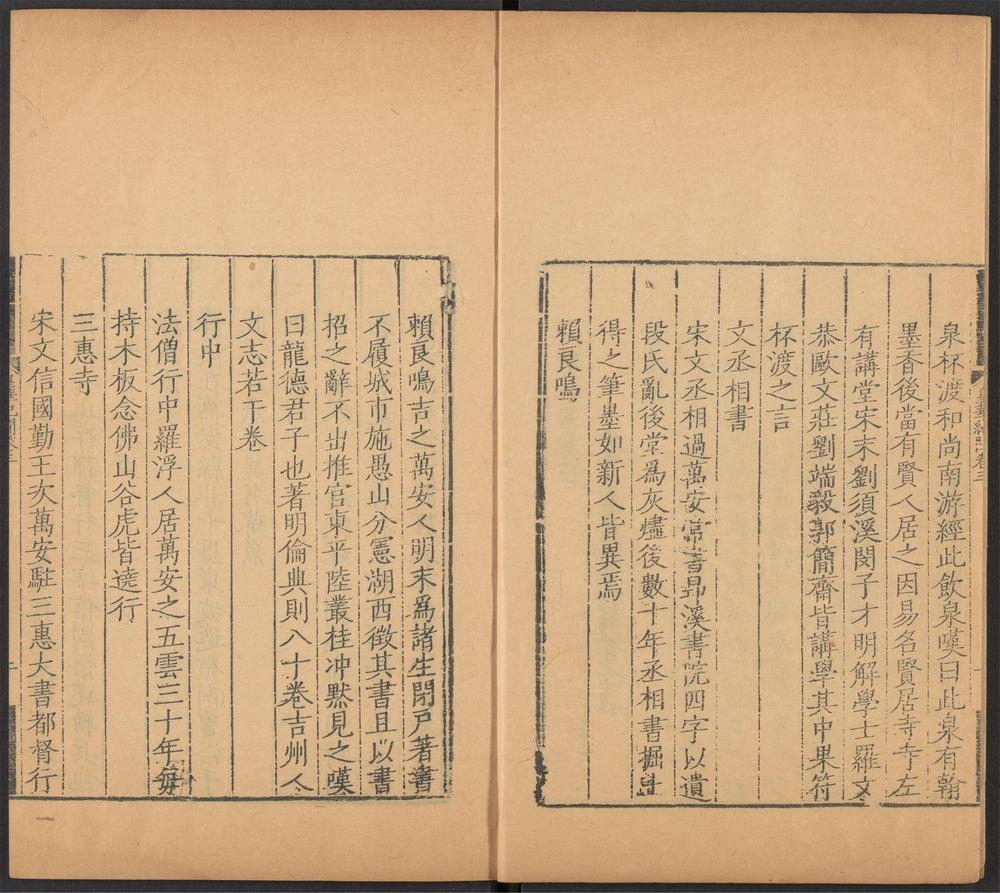 泉杯渡和尚南游經此飲泉嘆曰此泉有翰
墨香後當有賢人居之因易名賢居寺寺左
有講堂宋末劉須溪閔子才明解學士羅文
恭歐文莊劉端毅郭簡齋皆講學其中果符
杯渡之言
文丞相書
宋文丞相過萬安常書昂溪書院四字以遺
段氏亂後堂為灰燼後數十年丞相書掘土
得之筆墨如新人皆異焉
賴良鳴
賴良鳴吉之萬安人明末為諸生閉戸著書
不履城市施愚山分憲湖西徵其書且以書
招之辭不出推官東平陸叢桂冲黙見之嘆
曰龍德君子也著明倫典則八十卷吉州人
文志若干卷
行中
法僧行中羅浮人居萬安之五雲三十年毎
持木板念佛山谷虎皆遶行
三惠寺
宋文信國勤王次萬安駐三惠大書都督行